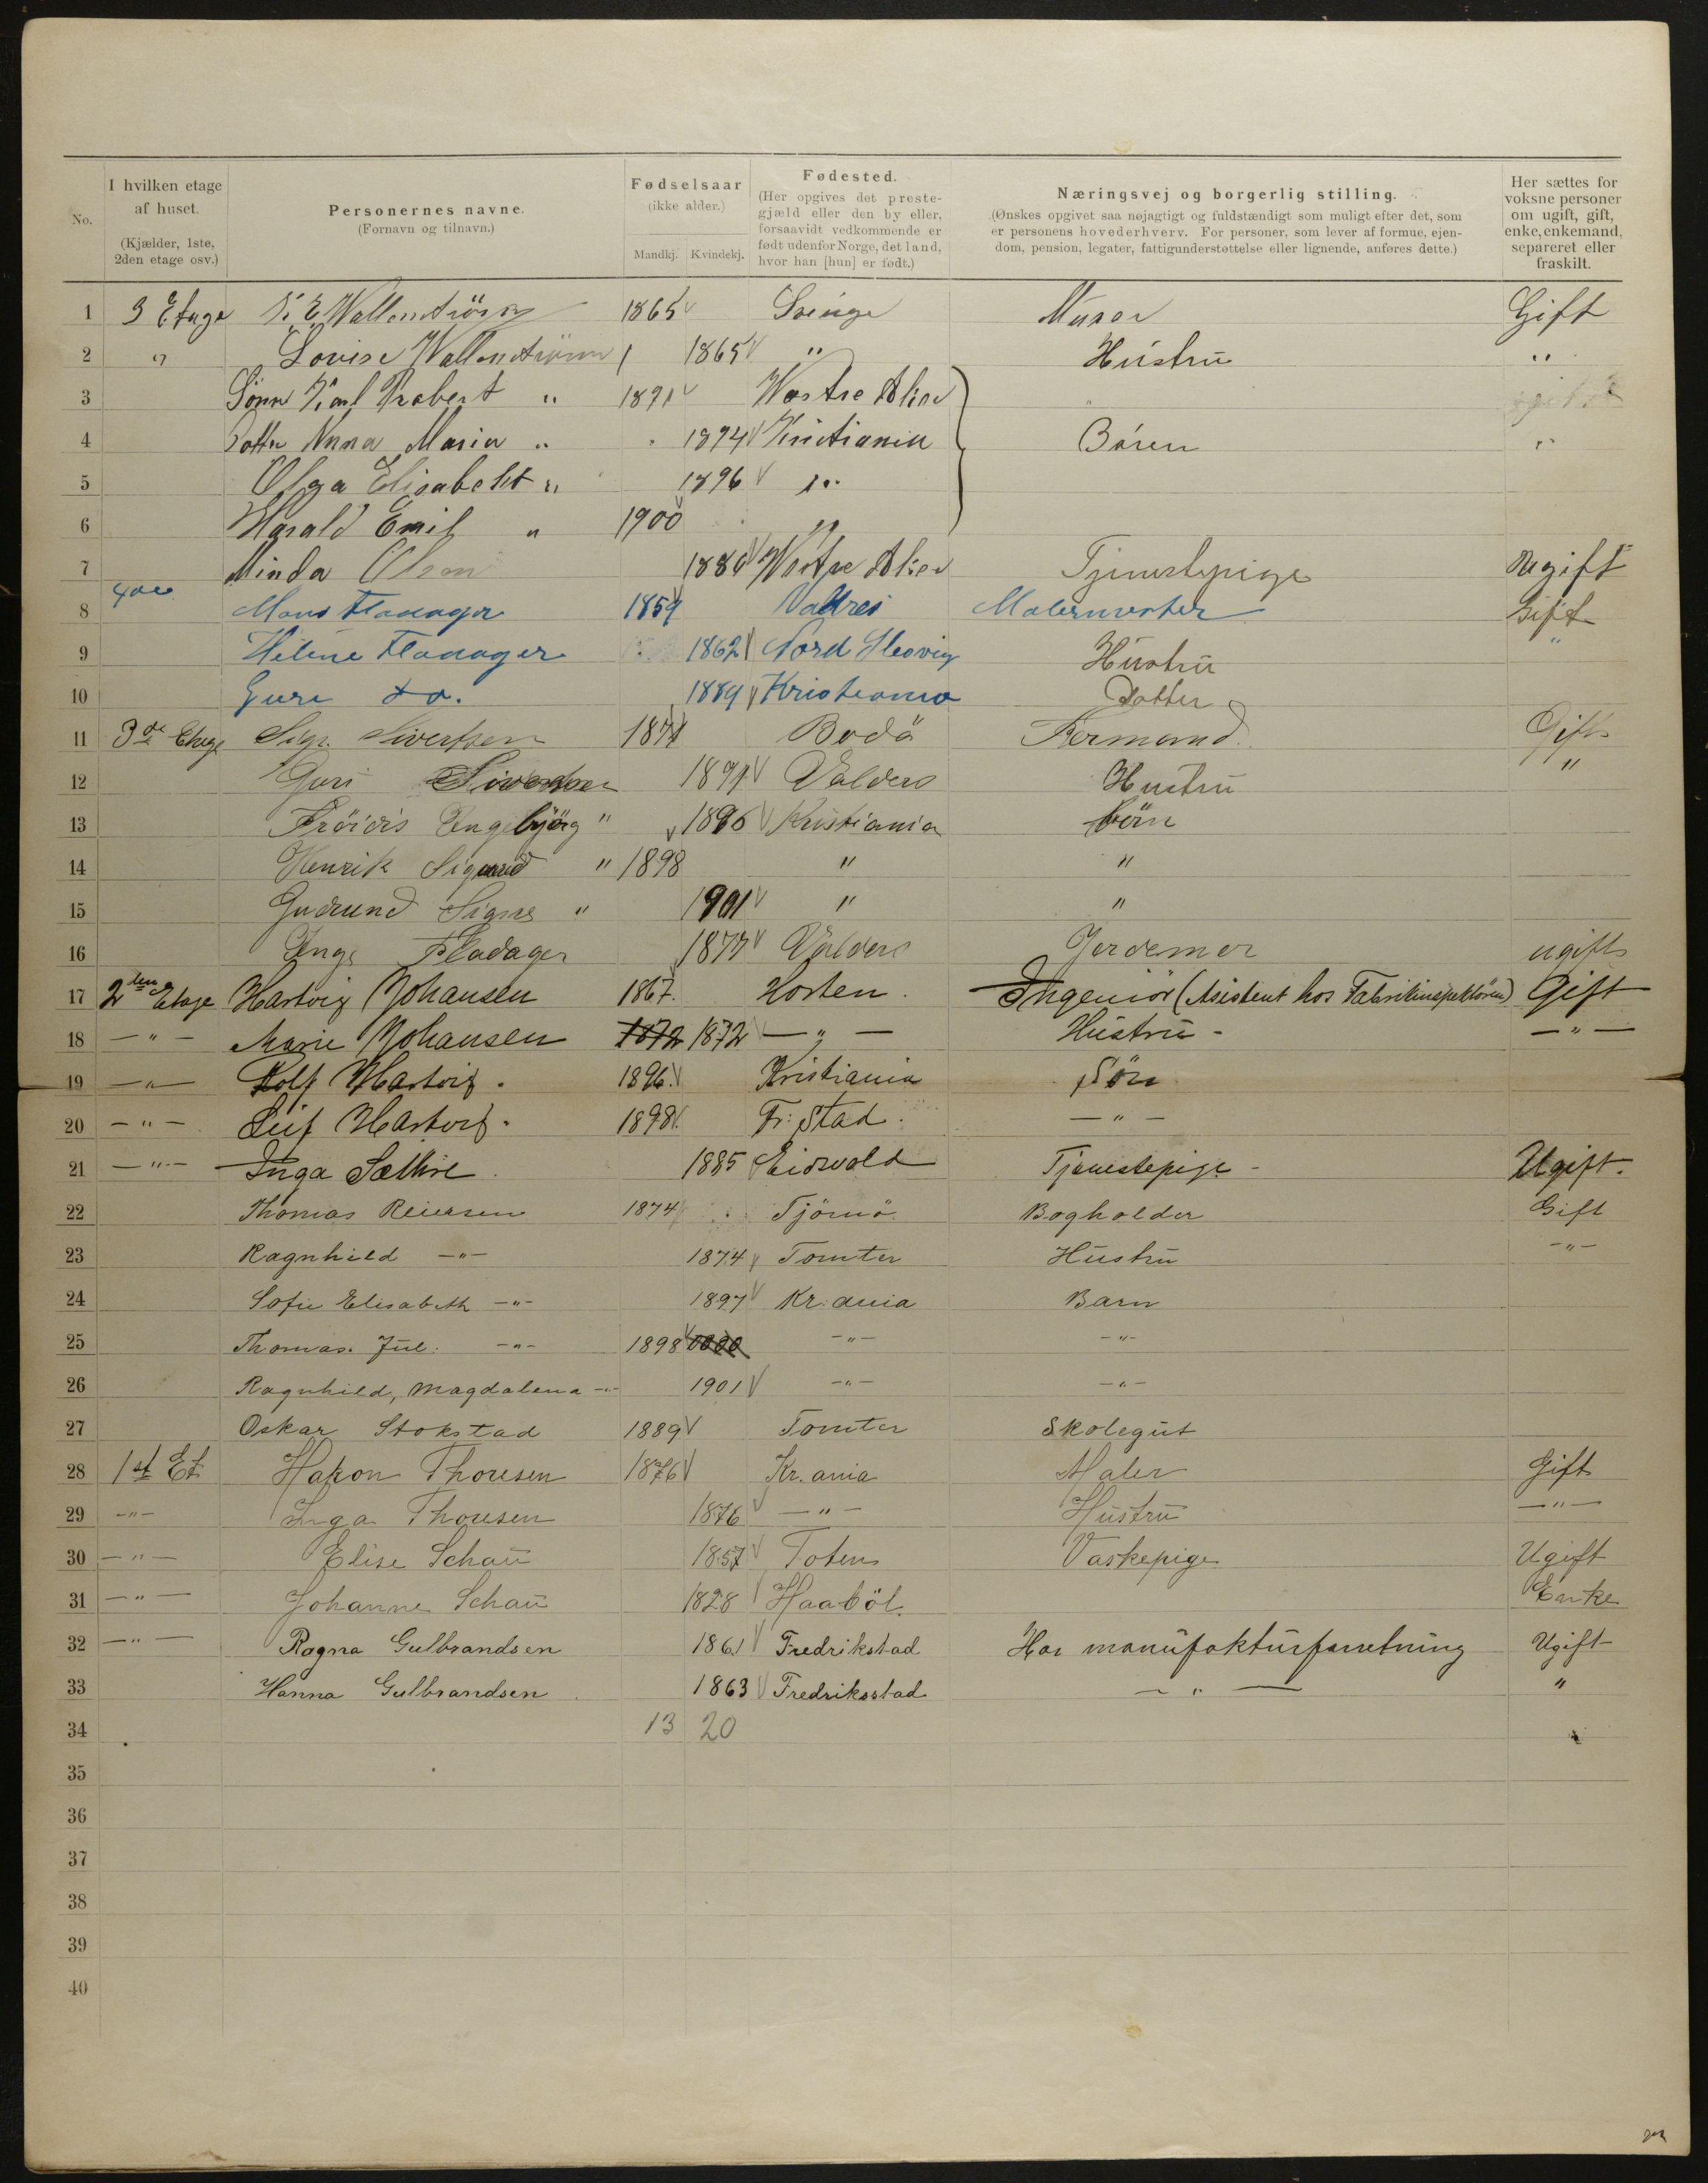 No. I hvilken etage af huset. (Kjælder, 1ste, 2den etage osv.) Personernes navne. (Fornavn og tilnavn.) Fødselsaar (ikke alder.) Mandkj. Kvindekj. Fødested. (Her opgives det prestegjæld eller den by eller, forsaavidt vedkommende er født udenfor Norge, det land, hvor han [hun] er født.) Næringsvej og borgerlig stilling. (Ønskes opgivet saa nøjagtigt og fuldstændigt som muligt efter det, som er personens hovederhverv. For personer, som lever af formue, ejendom, pension, legater, fattigunderstøttelse eller lignende, anføres dette.) Her sættes for voksne personer om ugift, gift, enke, enkemand, separeret eller fraskilt.
1 3 Etage K E Wallenström 1865 Sverige Murer Gift
2 " Lovise Wallenström 1865 " Hustru "
3 Sönn Karl Robert " 1891 Westre Aker
4 Datter Anna Maria " 1894 Kristiania Bören "
5 Olga Elisabeht " 1896 "
6 Harald Emil " 1900 "
7 Minda Olsen 1886 Westre Aker Tjenestepige Ugift
8 4de Mons Fladager 1859 Valdres Malermester Gift
9 Helene Fladager 1862 Nord Slesvig Hustru "
10 Guri do. 1889 Kristiania Datter
11 3de Etage Sigv. Sivertsen 1871 Bodö Formand Gift
12 Guri Sivertsen 1871 Valders Hustru "
13 Fröidis Ingebjörg " 1896 Kristiania börn
14 Henrik Sigurd " 1898 " "
15 Gudrund Signe " 1901 " "
16 Inga Fladager 1877 Valders Jordemor ugift
17 2den Etage Hartvig Johansen 1867. Horten. Ingeniör (Asistent hos Fabrikinspektören) Gift
18 —"— Marie Johansen 1872 1872 —"— Hustru - —"—
19 —"— Rolf Hartvig. 1896. Kristiania Sön
20 —"— Leif Hartvig. 1898. Fr: Stad. —"—
21 —"— Inga Sæthre. 1885 Eidsvold Tjenestepige - Ugift.
22 Thomas Reiersen 1874 Tjömö Bogholder Gift
23 Ragnhild —"— 1874 Tomter Hustru —"—
24 Sofie Elisabeth —"— 1897 Kr:ania Barn
25 Thomas. Jul. —"— 1898 —"— —"—
26 Ragnhild, Magdalena —"— 1901 —"— —"—
27 Oskar Stokstad 1889 Tomter Skolegut
28 1st Et Hakon Thoresen 1876 Kr.ania Maler Gift
29 —"— Inga Thoresen 1876 —"— Hustru —"—
30 —"— Elise Schau 1857 Toten Vaskepige Ugift
31 —"— Johanne Schau 1828 Haaböl. Enke
32 —"— Ragna Gulbrandsen 1861 Fredrikstad Har manufakturforretning Ugift
33 Hanna Gulbrandsen 1863 Fredriksstad —"— "
34 13 20
35
36
37
38
39
40